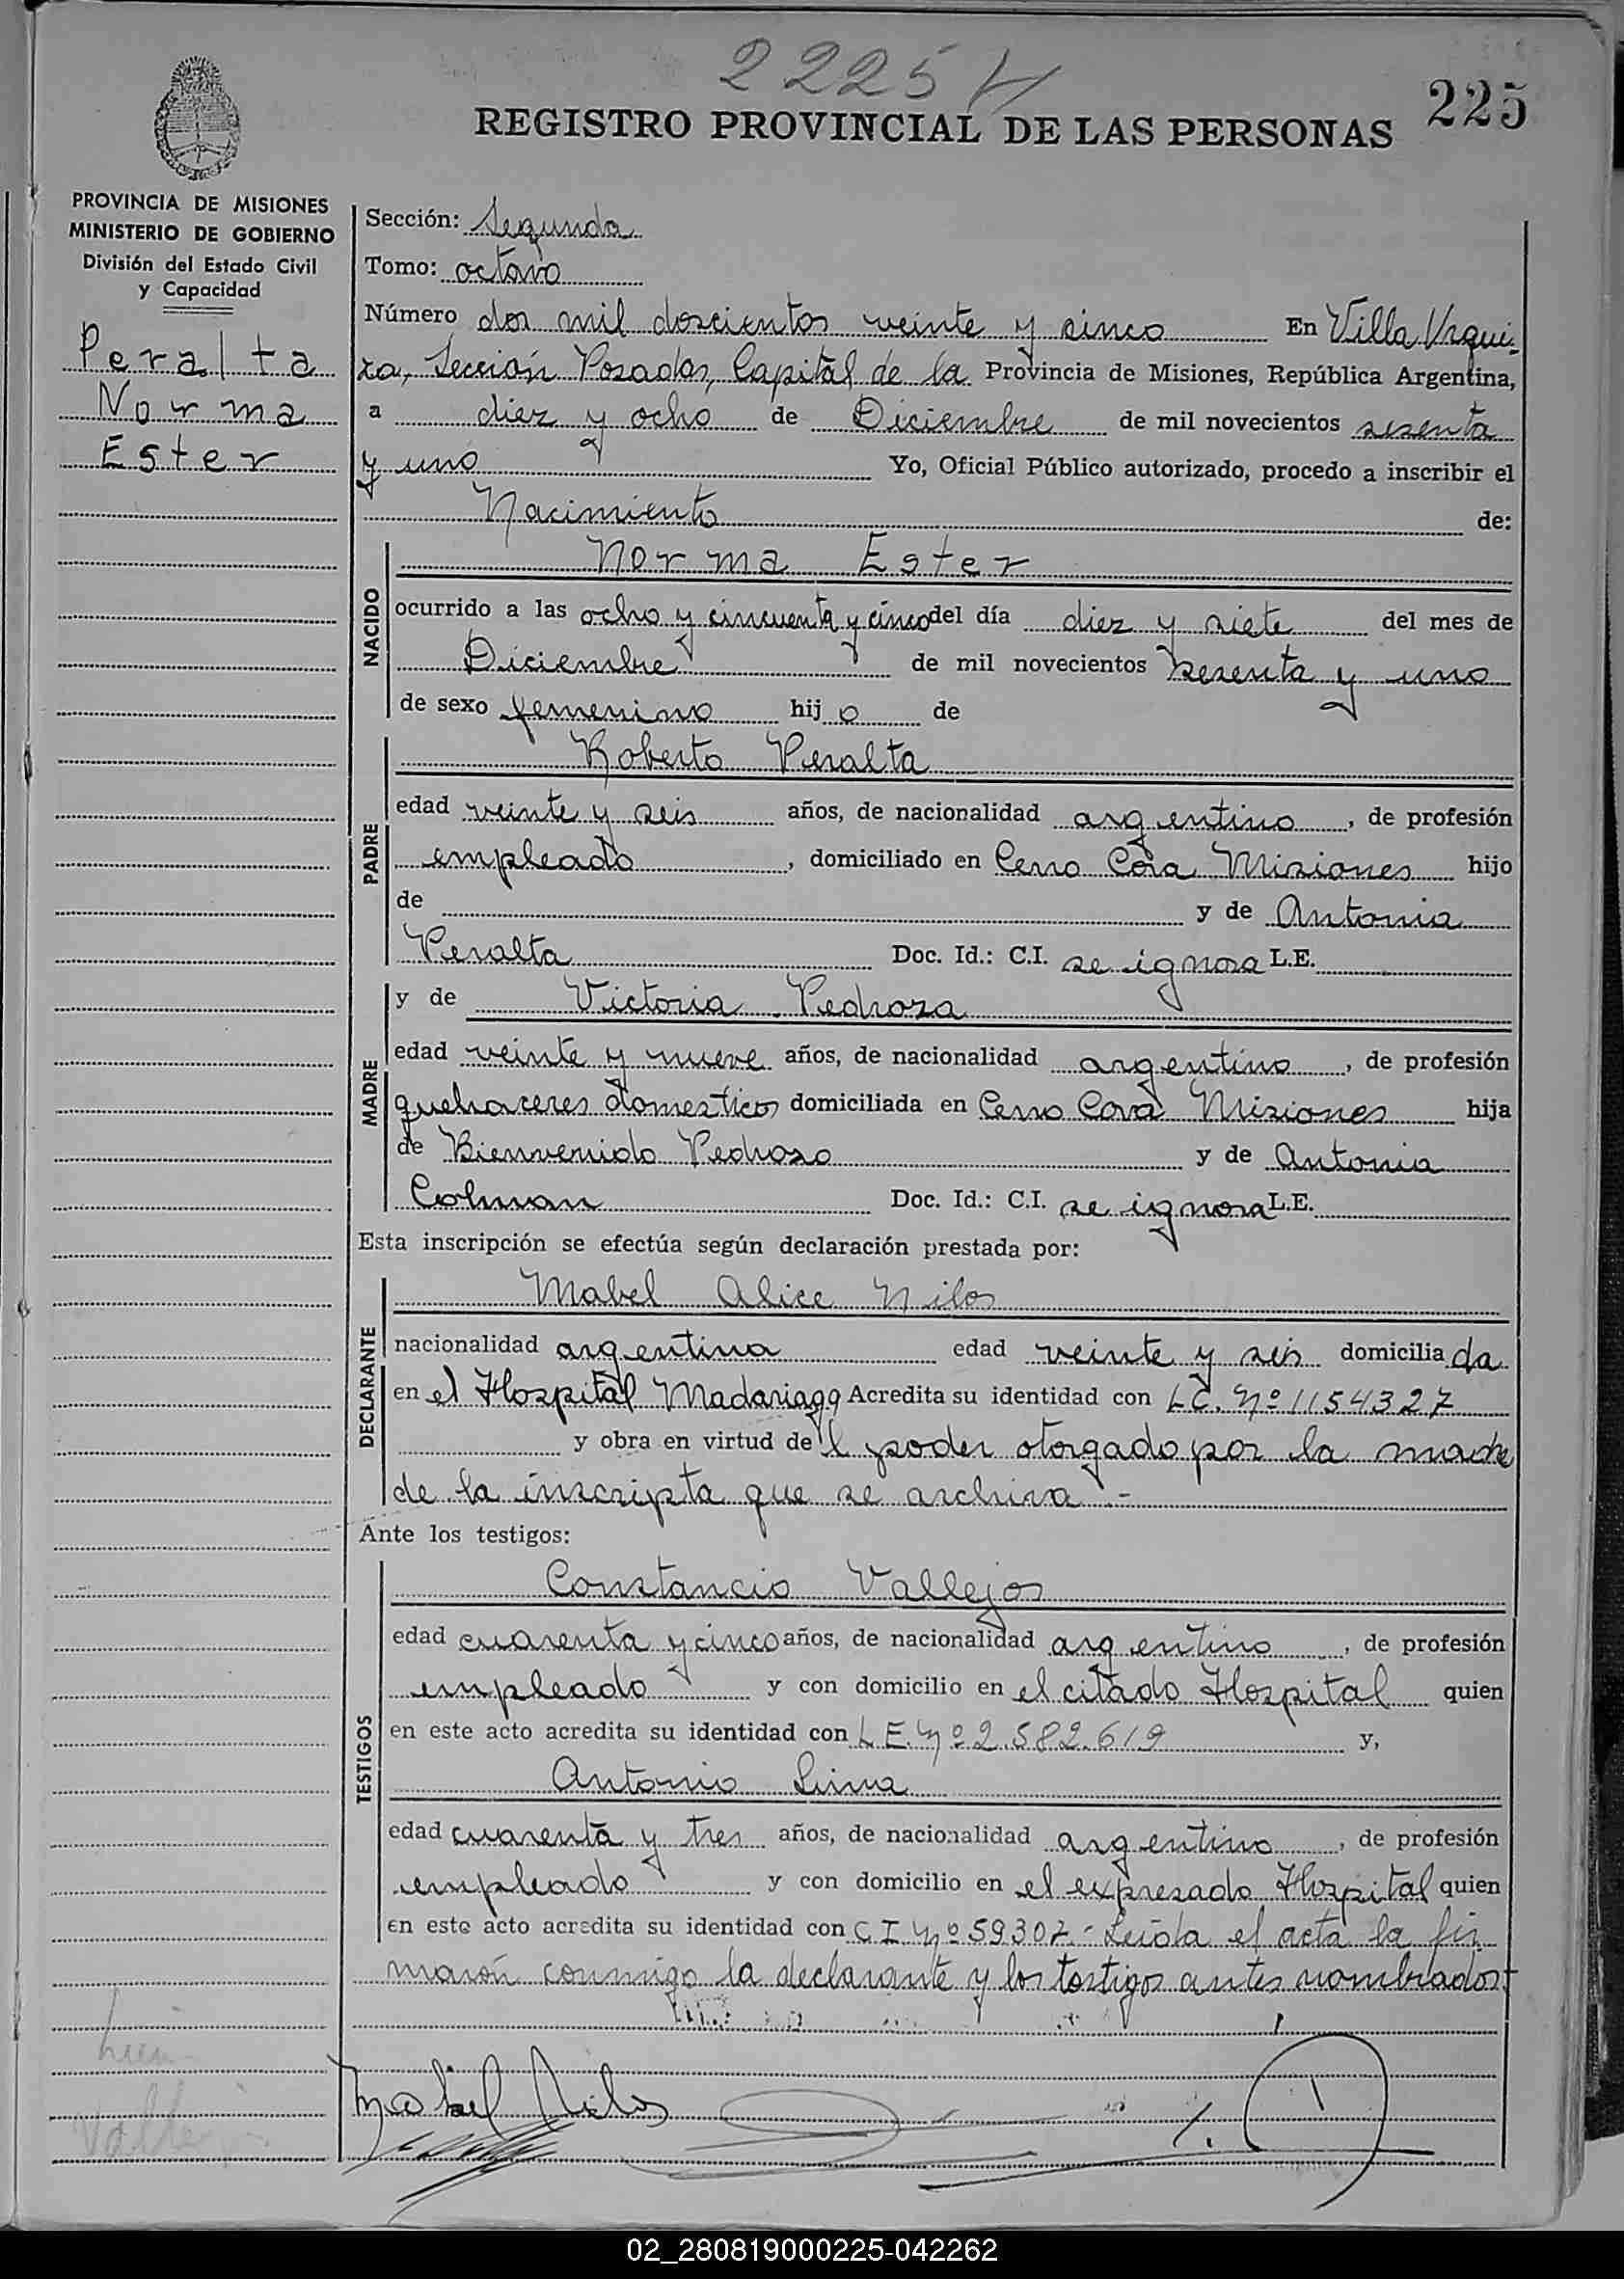 2225
225
REGISTRO PROVINCIAL DE LAS PERSONAS
PROVINCIA DE MISIONES
MINISTERIO DE GOBIERNO
División del Estado Civil
y Capacidad
Peralta
Norma
Ester
Sección: Segunda
Tomo: octavo
Número dos mil doscientos veinte y cinco En Villa Urqui-
za, Sección Posadas, Capital de la Provincia de Misiones, República Argentina,
a diez y ocho de Diciembre de mil novecientos sesenta
y uno Yo, Oficial Público autorizado, procedo a inscribir el
Nacimiento de:
NACIDO
Norma Ester
ocurrido a las ocho y cincuenta y cinco del día diez y siete del mes de
Diciembre de mil novecientos sesenta y uno
de sexo femenino hijo de
PADRE
Roberto Peralta
edad veinte y seis años, de nacionalidad argentino, de profesión
empleado, domiciliado en Cerro Corá Misiones hijo
de y de Antonia
Peralta Doc. Id.: C.I. se ignora L.E.
MADRE
y de Victoria Pedroza
edad veinte y nueve años, de nacionalidad argentino, de profesión
quehaceres domesticos domiciliada en Cerro Corá Misiones hija
de Bienvenido Pedrozo y de Antonia
Colman Doc. Id.: C.I. se ignora L.E.
Esta inscripción se efectúa según declaración prestada por:
DECLARANTE
Mabel Alice Nilos
nacionalidad argentina edad veinte y seis domiciliada
en el Hospital Madariaga Acredita su identidad con L.C. Nº 1154327
y obra en virtud del poder otorgado por la madre
de la inscripta que se archiva.-
Ante los testigos:
TESTIGOS
Constancio Vallejos
edad cuarenta y cinco años, de nacionalidad argentino, de profesión
empleado y con domicilio en el citado Hospital quien
en este acto acredita su identidad con L.E. Nº 2.582.619 y,
Antonio Lima
edad cuarenta y tres años, de nacionalidad argentino, de profesión
empleado y con domicilio en el expresado Hospital quien
en este acto acredita su identidad con C I Nº 59307.- Leída el acta la fir
maron conmigo la declarante y los testigos antes nombrados
Mabel Nilos
02_280819000225-042262